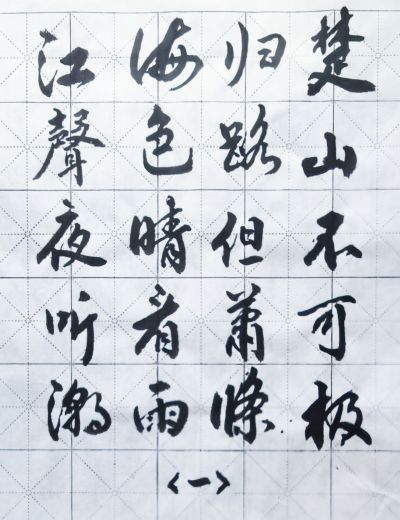 楚山不可极
归路但萧條
海色晴看雨
江聲夜听潮
<一>